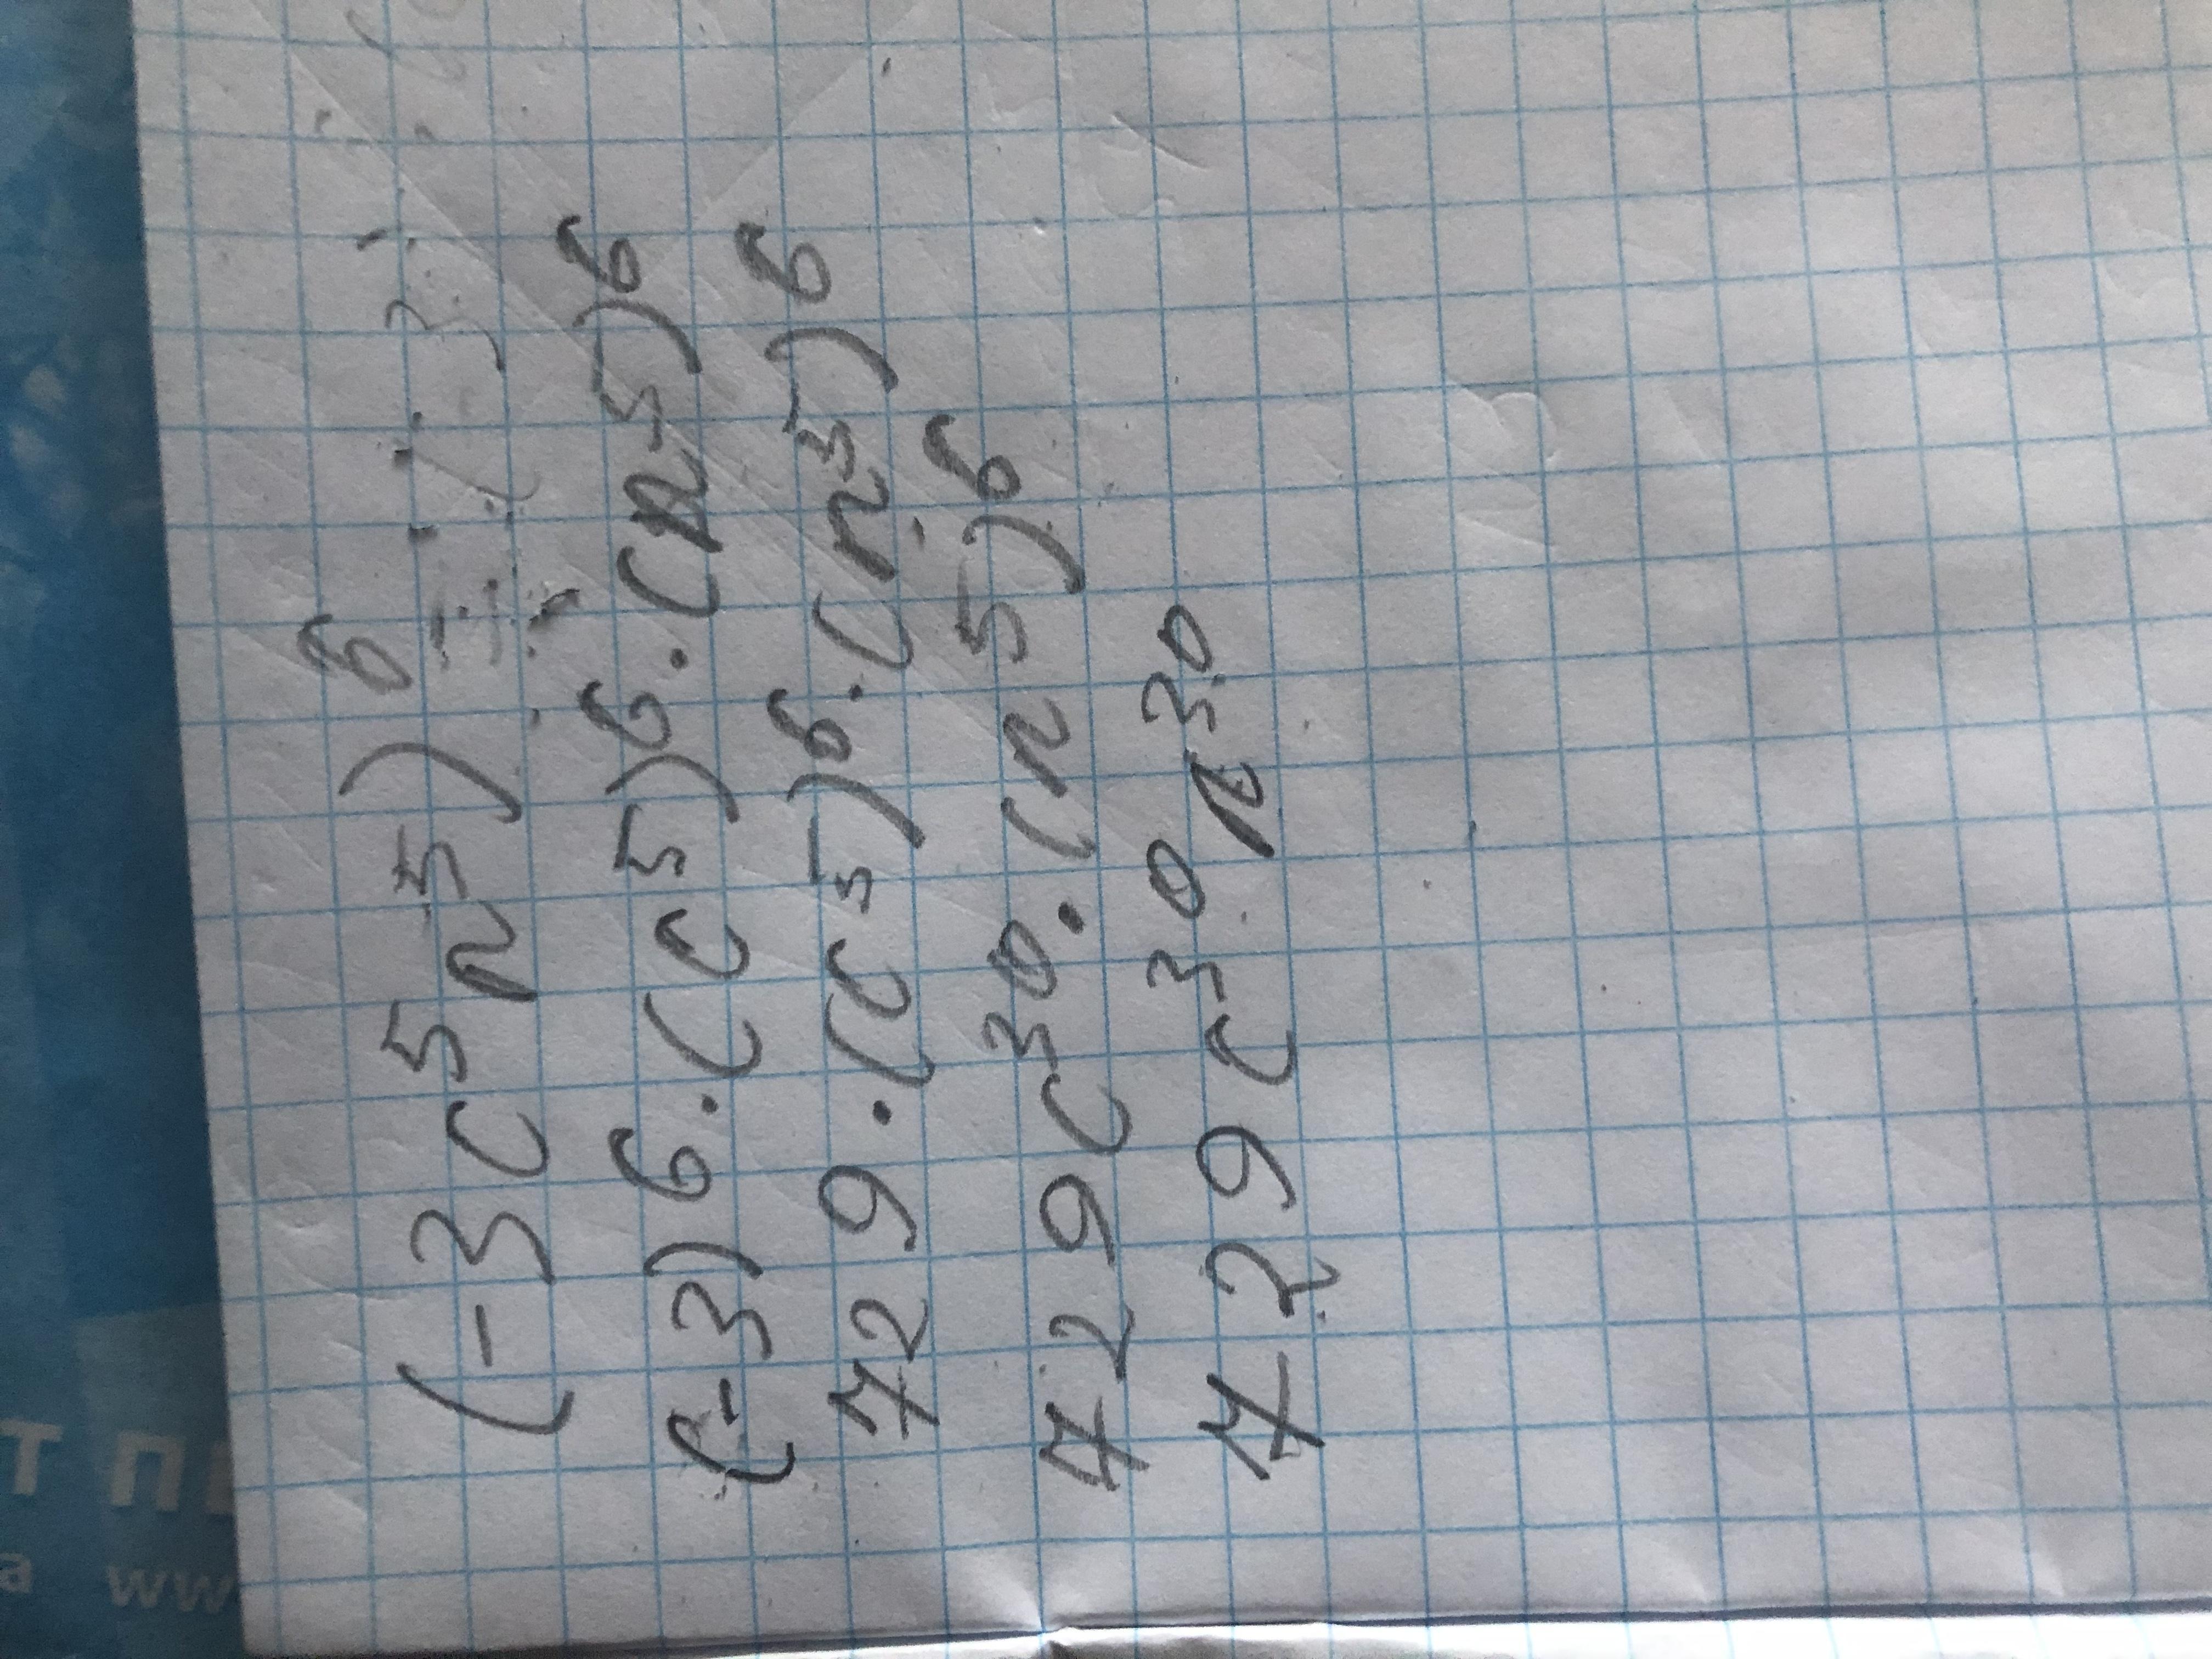 (-3c⁵n⁵)⁶
(-3)⁶·(c⁵)⁶·(n⁵)⁶
729·(c⁵)⁶·(n⁵)⁶
729c³⁰·(n⁵)⁶
729c³⁰n³⁰